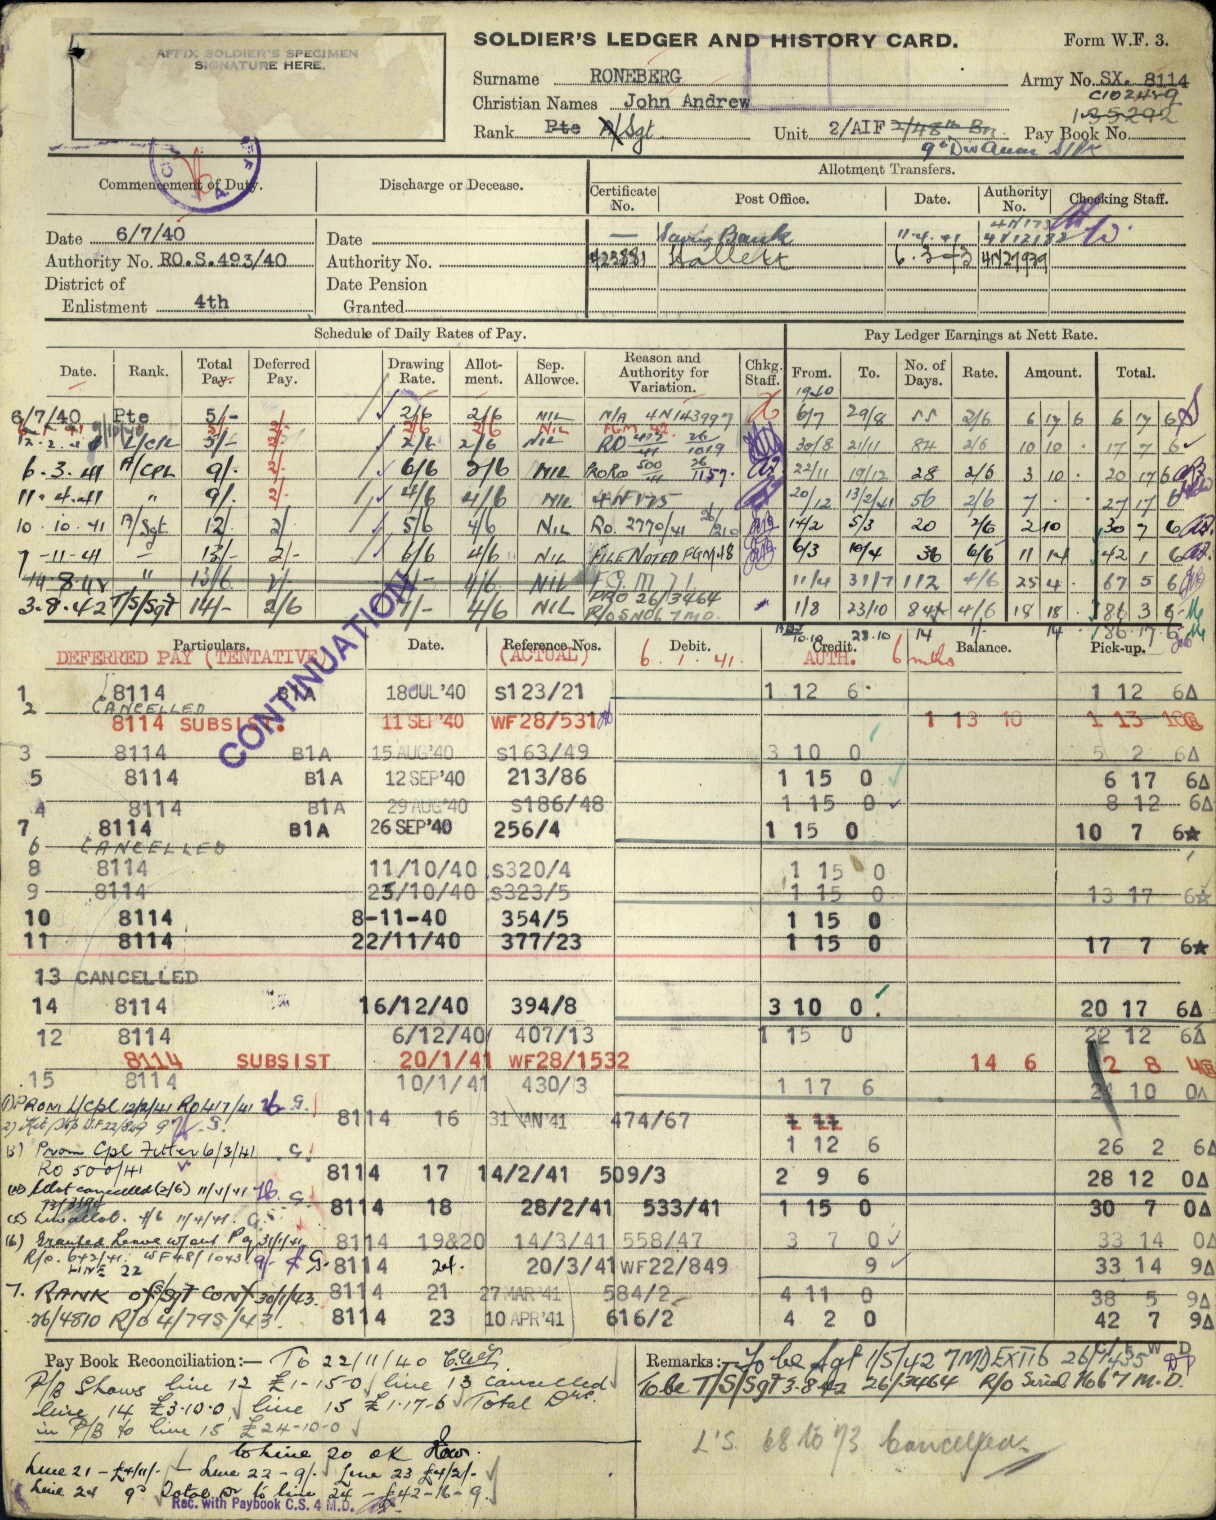 AFFIX SOLDIER'S SPECIMEN
SIGNATURE HERE.
SOLDIER'S LEDGER AND HISTORY CARD.
Form W.F. 3.
Surname RONEBERG
Army No. SX. 8114
C102489
Christian Names John Andrew
135292
Rank Pte A/Sgt Unit 2/AIF 2/48th Bn Pay Book No.
Commencement of Duty.
Discharge or Decease.
Allotment Transfers.
Certificate No. Post Office. Date. Authority No. Checking Staff.
Date 6/7/40
Date
— Savings Bank 11.4.41 4N12182
Authority No. RO.S.493/40
Authority No.
423881 Hallett 6.3.43 4N27939
District of
Enlistment 4th
Date Pension
Granted
Schedule of Daily Rates of Pay.
Pay Ledger Earnings at Nett Rate.
Date. Rank. Total Pay. Deferred Pay. Drawing Rate. Allotment. Sep. Allowce. Reason and Authority for Variation. Chkg. Staff. From. To. No. of Days. Rate. Amount. Total.
1940
6/7/40 Pte 5/- 2/6 2/6 NIL N/A 4N143997 6/7 29/8 55 2/6 6 17 6 6 17 6
2/6 2/6 NIL FGM 42
L/CPL 5/- 2/- 2/6 2/6 NIL RO 417/41 26/1019 30/8 21/11 84 2/6 10 10 . 17 7 6
6.3.41 A/CPL 9/- 2/- 6/6 2/6 NIL RORO 500/41 26/1157 22/11 19/12 28 2/6 3 10 . 20 17 6
11.4.41 " 9/- 2/- 4/6 4/6 NIL 4N175 20/12 13/2/41 56 2/6 7 . . 27 17 6
10.10.41 A/Sgt 12/- 2/- 5/6 4/6 NIL RO. 2770/41 14/2 5/3 20 2/6 2 10 30 7 6
7-11-41 — 13/- 2/- 6/6 4/6 NIL FILE NOTED FGM 48 6/3 10/4 36 6/6 11 14 42 1 6
" 13/6 2/- 4/6 NIL F.G.M 71 11/4 31/7 112 4/6 25 4 . 67 5 6
3.8.42 T/S/Sgt 14/- 2/6 7/- 4/6 NIL DRO 26/3464 R/O S No 67 MD. 1/8 23/10 84 4/6 18 18 . 86 3 6
10.10 23.10 14 1/- 14 . 86 17 6
Particulars. Date. Reference Nos. Debit. Credit. Balance. Pick-up.
DEFERRED PAY (TENTATIVE (ACTUAL) 6.1.41. AUTH. 6 mths
CONTINUATION
1 8114 B1A 18 JUL'40 S123/21 1 12 6 1 12 6Δ
2 CANCELLED
8114 SUBSIST. 11 SEP'40 WF28/531 1 13 10 1 13 10
3 8114 B1A 15 AUG'40 S163/49 3 10 0 5 2 6Δ
5 8114 B1A 12 SEP'40 213/86 1 15 0 6 17 6Δ
4 8114 B1A 29 AUG'40 S186/48 1 15 0 8 12 6Δ
7 8114 B1A 26 SEP'40 256/4 1 15 0 10 7 6☆
6 CANCELLED
8 8114 11/10/40 S320/4 1 15 0
9 8114 25/10/40 S323/5 1 15 0 13 17 6☆
10 8114 8-11-40 354/5 1 15 0
11 8114 22/11/40 377/23 1 15 0 17 7 6☆
13 CANCELLED
14 8114 16/12/40 394/8 3 10 0 20 17 6Δ
12 8114 6/12/40 407/13 1 15 0 22 12 6Δ
8114 SUBSIST 20/1/41 WF28/1532 14 6 2 8 4
15 8114 10/1/41 430/3 1 17 6 24 10 0Δ
(1) PROM L/Cpl 12/2/41 RO 417/41
8114 16 31 JAN'41 474/67 1 12 6 26 2 6Δ
(3) Prom Cpl Fitter 6/3/41
RO 500/41
8114 17 14/2/41 509/3 2 9 6 28 12 0Δ
(4) Allot cancelled (2/6) 11/4/41
8114 18 28/2/41 533/41 1 15 0 30 7 0Δ
(5) New allot. 4/6 11/4/41.
(6) Granted Leave w/out Pay 31/1/41
8114 19&20 14/3/41 558/47 3 7 0 33 14 0Δ
R/O. 642/41. WF48/1043
LINE 22
8114 24. 20/3/41 WF22/849 9 33 14 9Δ
7. RANK of S/Sgt CONF 30/1/43.
8114 21 27 MAR'41 584/2 4 11 0 38 5 9Δ
26/4810 R/O 4/795/43.
8114 23 10 APR'41 616/2 4 2 0 42 7 9Δ
Pay Book Reconciliation:— To 22/11/40
P/B Shows line 12 £1-15-0 line 13 cancelled
line 14 £3-10-0 line 15 £1-17-6 Total Drs.
in P/B to line 15 £24-10-0
to line 20 OK
Line 21 - £4/11/- Line 22 - 9/- Line 23 £4/2/-
Line 24 9d Total Dr to line 24 - £42-16-9
Rec. with Paybook C.S. 4 M.D.
Remarks:— To be Sgt 1/5/42 7MD EX116 26/1435
To be T/S/Sgt 3.8.42 26/3464 R/O Serial No 67 M.D.
L'S. 68 to 73 Cancelled